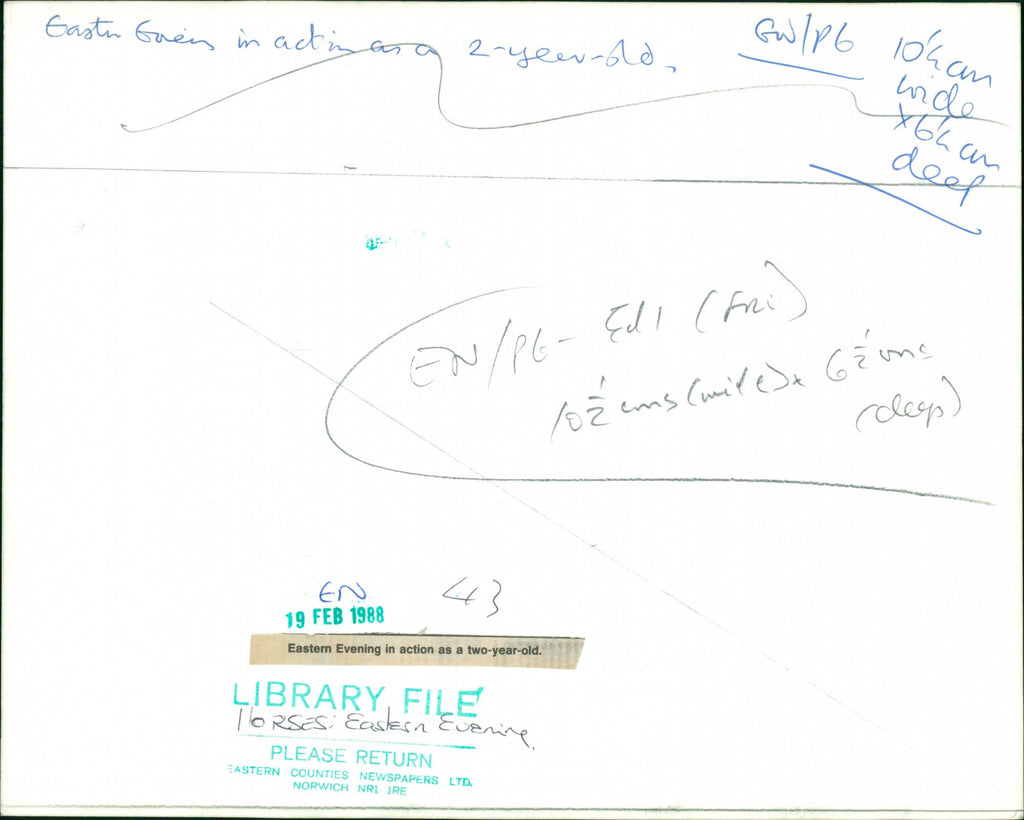 Eastern Evening in action as a 2-year-old.
EN/P6
10½ cm
wide
x 6½ cm
deep
EN/P6 - Ed 1 (Fri)
10½ cms (wide) x 6½ cms
(deep)
EN 43
19 FEB 1988
Eastern Evening in action as a two-year-old.
LIBRARY FILE
HORSES: Eastern Evening.
PLEASE RETURN
EASTERN COUNTIES NEWSPAPERS LTD.
NORWICH NR1 1RE